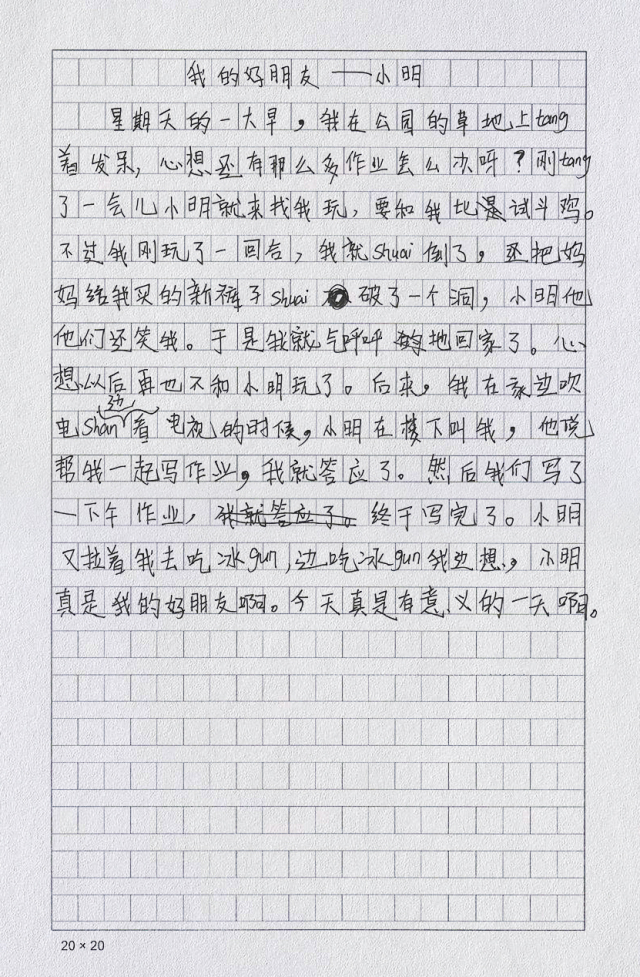 我的好朋友——小明
星期天的一大早，我在公园的草地上tang
着发呆，心想还有那么多作业怎么办呀？刚tang
了一会儿小明就来找我玩，要和我比试斗鸡。
不过我刚玩了一回合，我就shuai倒了，还把妈
妈给我买的新裤子shuai 破了一个洞，小明他
他们还笑我。于是我就气呼呼的地回家了。心
想以后再也不和小明玩了。后来，我在家边吹
边
电shan看电视的时候，小明在楼下叫我，他说
帮我一起写作业，我就答应了。然后我们写了
一下午作业，我就答应了。终于写完了。小明
又拉着我去吃冰gun，边吃冰gun我边想，小明
真是我的好朋友啊。今天真是有意义的一天啊。
20×20